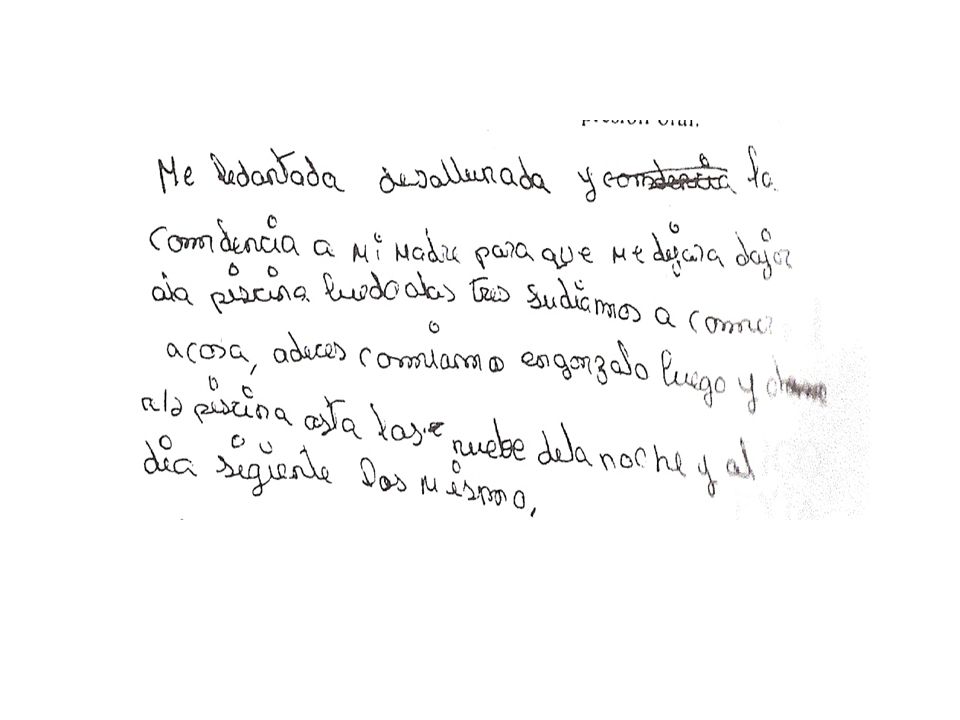 presión oral.
Me ledantada desallunada y comdencia la
comdencia a mi madre para que me dejara dajar
ala piscina luedo alas tres sudiamos a comer
acosa, adeces comiamo engonzalo luego y
ala piscina asta las nuebe dela noche y al
dia sigiente los mismo,